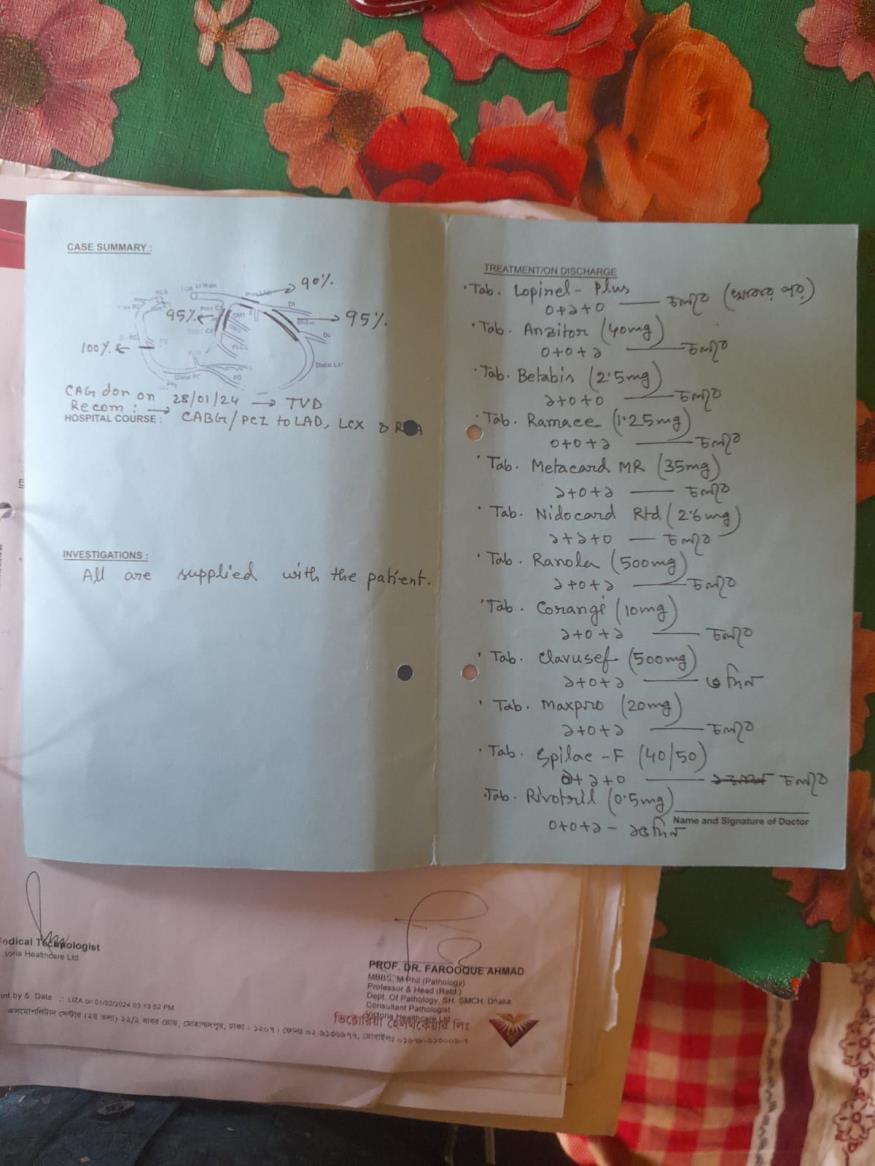 CASE SUMMARY :
90%
95%
95%
100%
CAG don on 28/01/24 → TVD
Recom : → CABG/PCI to LAD, LCX & RCA
HOSPITAL COURSE :
INVESTIGATIONS :
All are supplied with the patient.
TREATMENT/ON DISCHARGE
Tab. Lopirel-Plus
০+১+০ — চলবে (খাবার পর)
Tab. Anzitor (40mg)
০+০+১ — চলবে
Tab. Betabis (2.5mg)
১+০+০ — চলবে
Tab. Ramace (1.25mg)
০+০+১ — চলবে
Tab. Metacard MR (35mg)
১+০+১ — চলবে
Tab. Nidocard Rtd (2.6mg)
১+১+০ — চলবে
Tab. Ranola (500mg)
১+০+১ — চলবে
Tab. Corangi (10mg)
১+০+১ — চলবে
Tab. Clavusef (500mg)
১+০+১ — ৩ দিন
Tab. Maxpro (20mg)
১+০+১ — চলবে
Tab. Spilac-F (40/50)
০+১+০ — চলবে
Tab. Rivotril (0.5mg)
Name and Signature of Doctor
০+০+১ – দিন
Medical Technologist
Victoria Healthcare Ltd.
PROF. DR. FAROOQUE AHMAD
MBBS, M-Phil (Pathology)
Professor & Head (Retd.)
Dept. Of Pathology, SH, SMCH, Dhaka
Consultant Pathologist
Victoria Healthcare Ltd.
nt by & Date : LIZA on 01/02/2024 03:13:52 PM
ভিক্টোরিয়া হেলথকেয়ার লিঃ